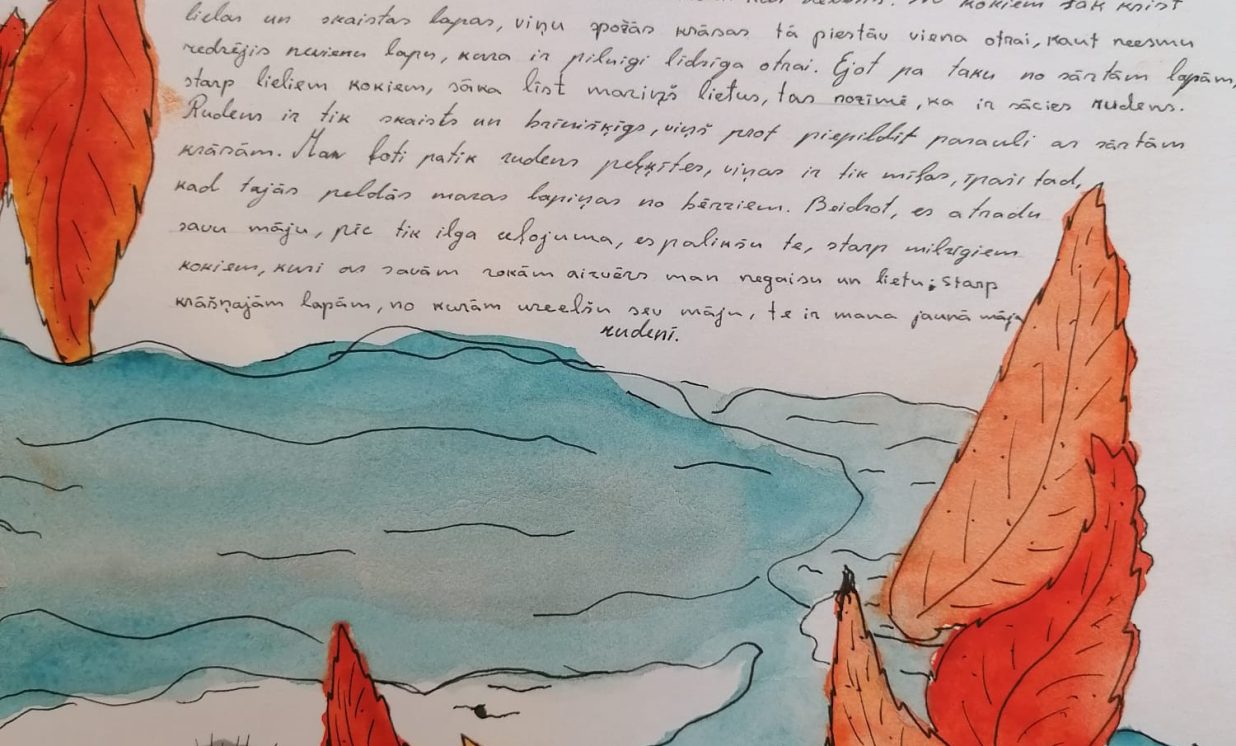 No kokiem tāk krist
lielas un skaistas lapas, viņu spožās krāsas tā piestāv viena otrai, kaut neesmu
redzējis nevienu lapu, kura ir pilnīgi līdzīga otrai. Ejot pa taku no sārtām lapām,
starp lieliem kokiem, sāka līst maziņš lietus, tas nozīmē, ka ir sācies rudens.
Rudens ir tik skaists un brīnišķīgs, viņš prot piepildīt pasauli ar sārtām
krāsām. Man ļoti patīk rudens peļķītes, viņas ir tik mīļas, īpaši tad,
kad tajās peldās mazas lapiņas no bērziem. Beidzot, es atradu
savu māju, pēc tik ilga ceļojuma, es palikšu te, starp milzīgiem
kokiem, kuri ar savām rokām aizvērs man negaisu un lietu; starp
krāšņajām lapām, no kurām uzcelšu sev māju, te ir mana jaunā māja
rudenī.